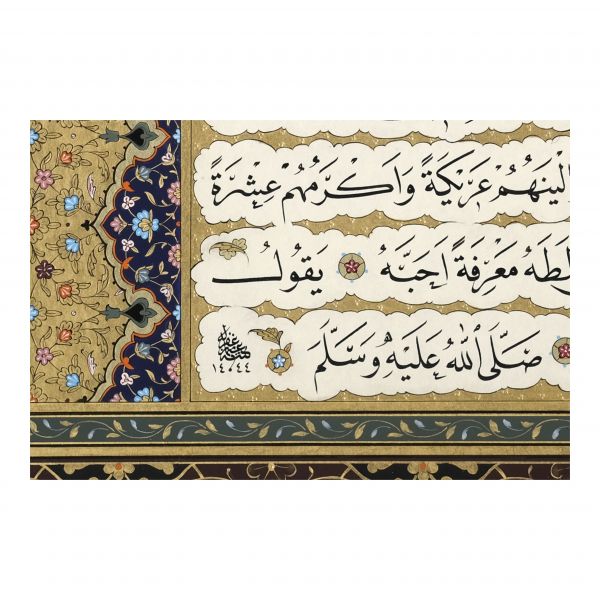 الينهم عريكة واكرمهم عشرة
معرفة احبه يقول
صلى الله عليه وسلم
١٤٤٤